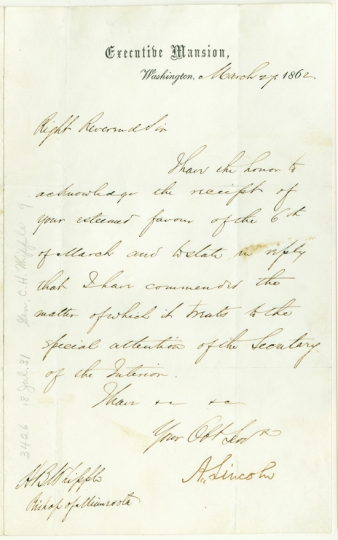 Executive Mansion,
Washington, March 27, 1862
Right Reverend Sir
I have the honor to
acknowledge the receipt of
your esteemed favour of the 6th
of March and to state in reply
that I have commended the
matter of which it treats to the
special attention of the Secretary
of the Interior.
I have &c &c
Your Obt Servt
A. Lincoln
H B Whipple
Bishop of Minnesota
3426 18 July 31 Gen. C. H. Whipple